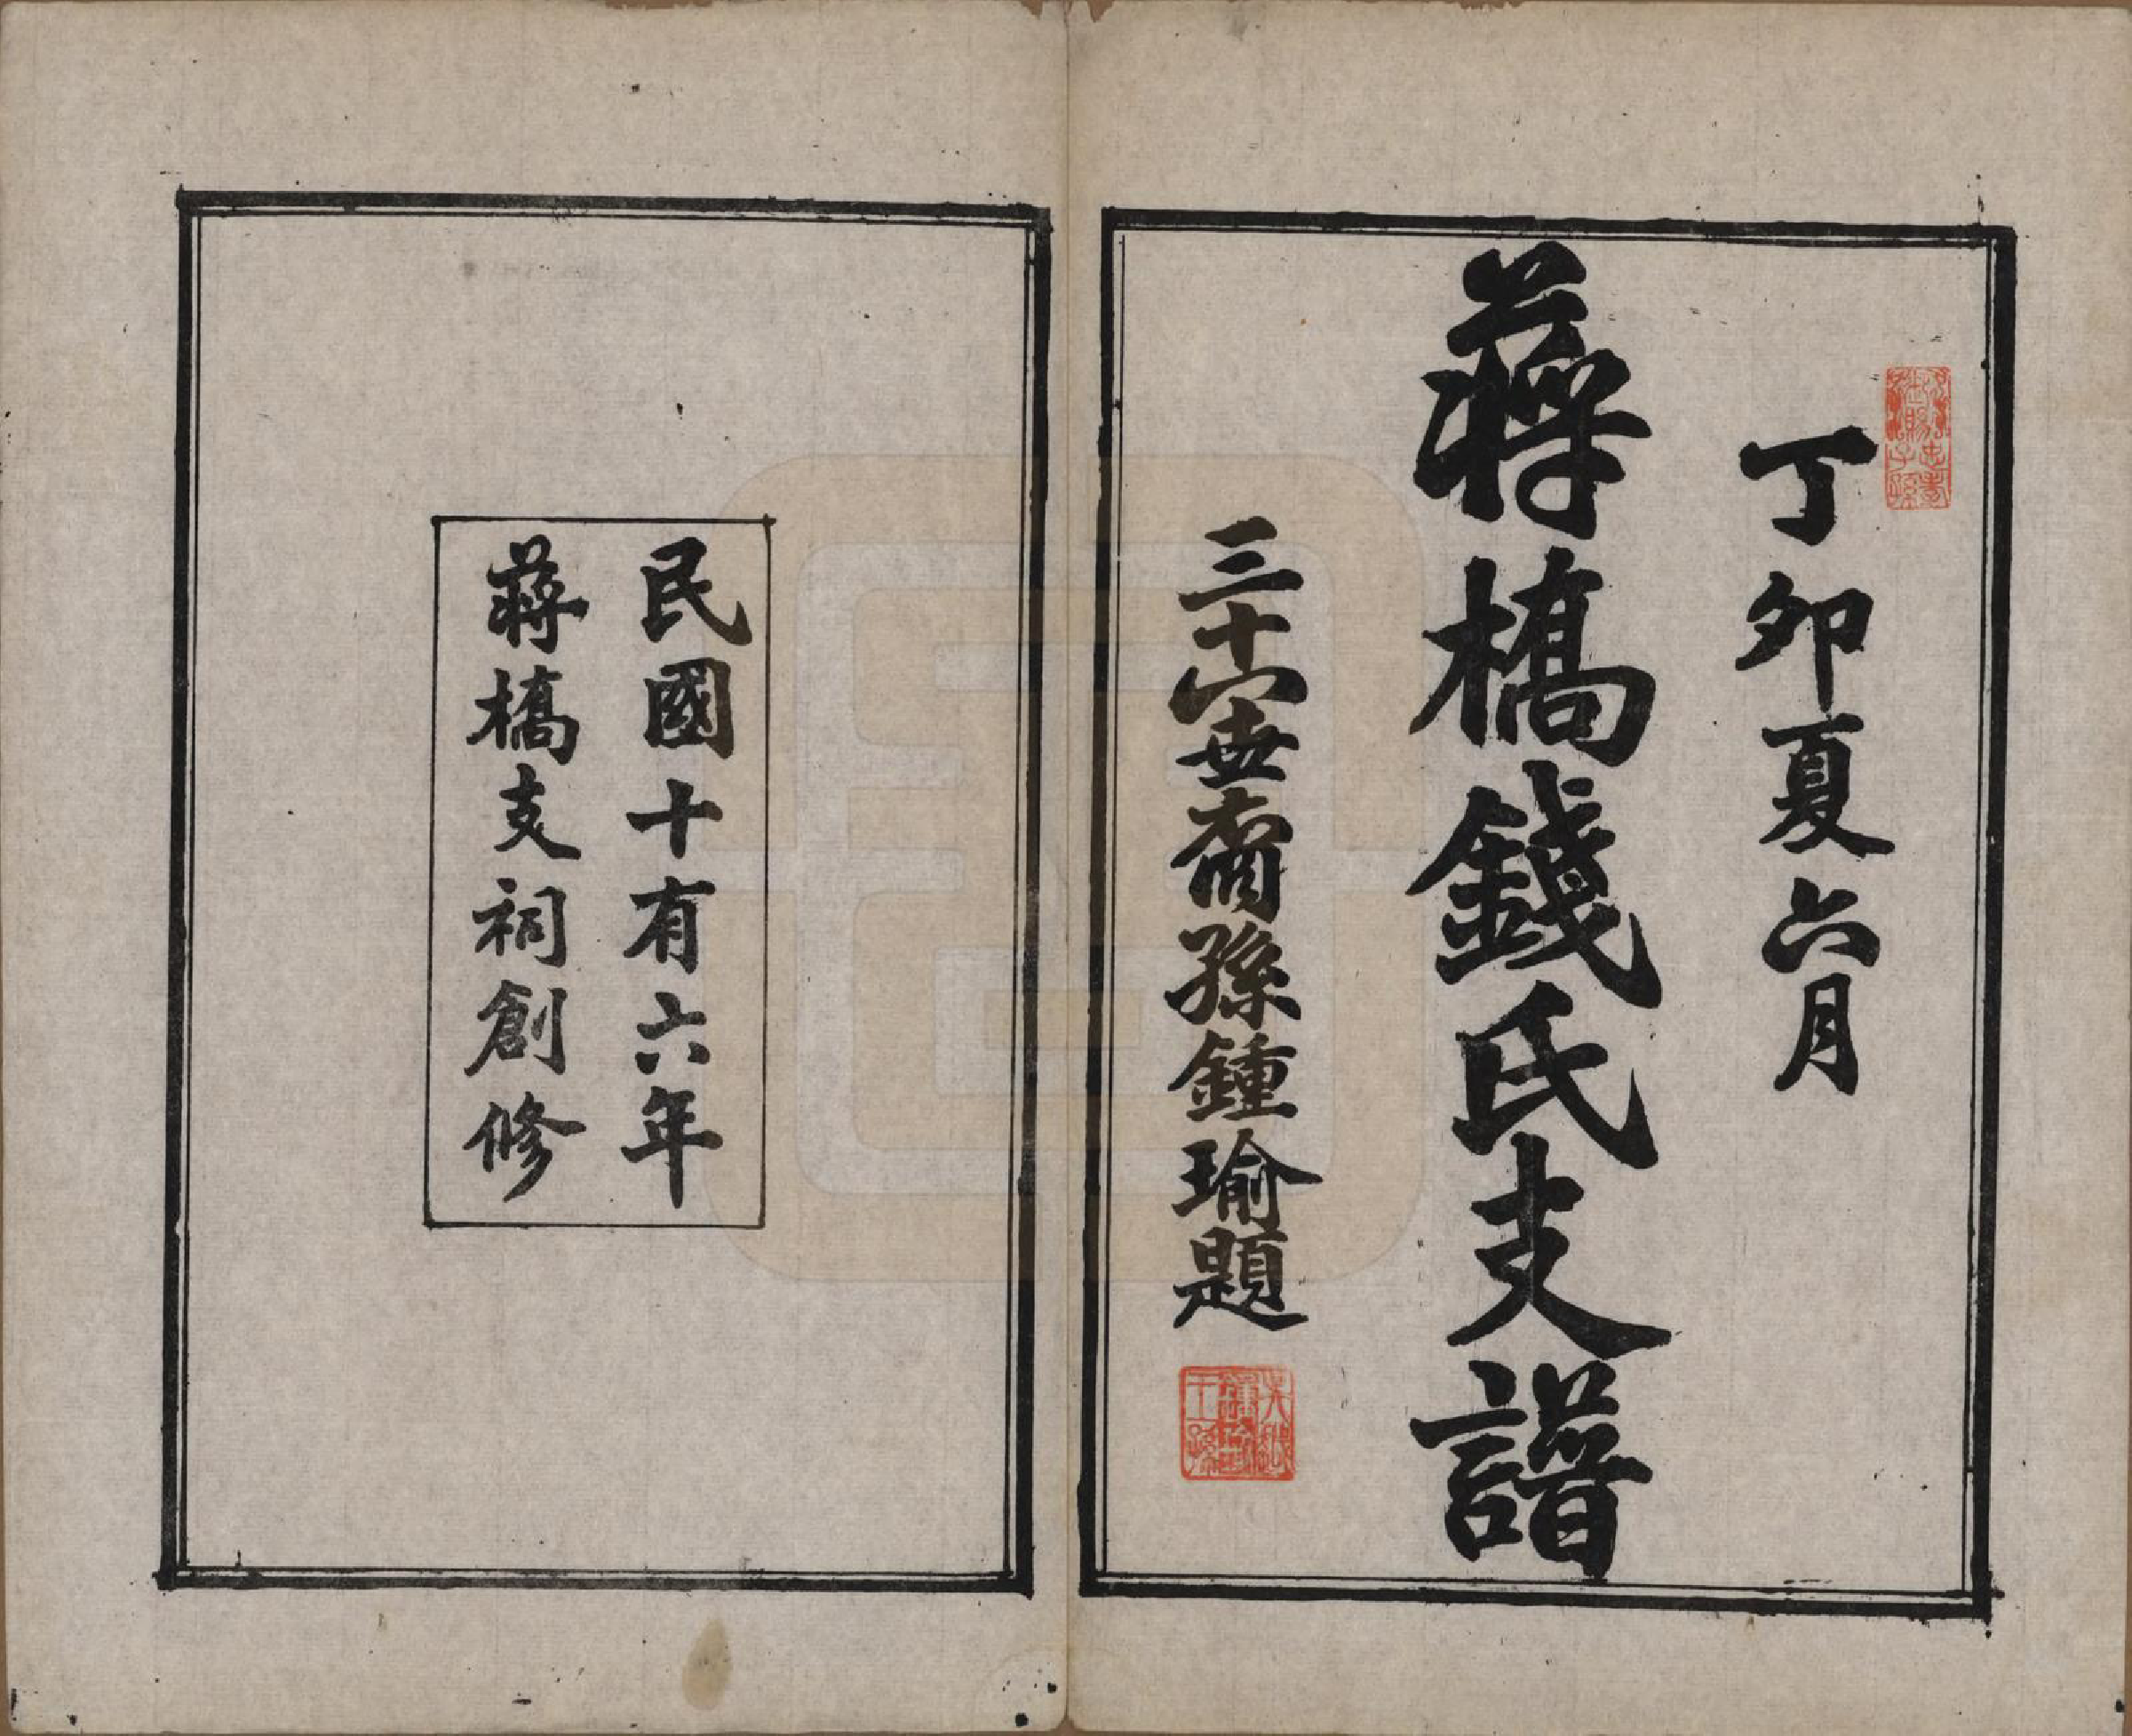 丁卯夏六月
蔣橋錢氏支譜
三十六世裔孫鍾瑜題
民國十有六年
蔣橋支祠創修